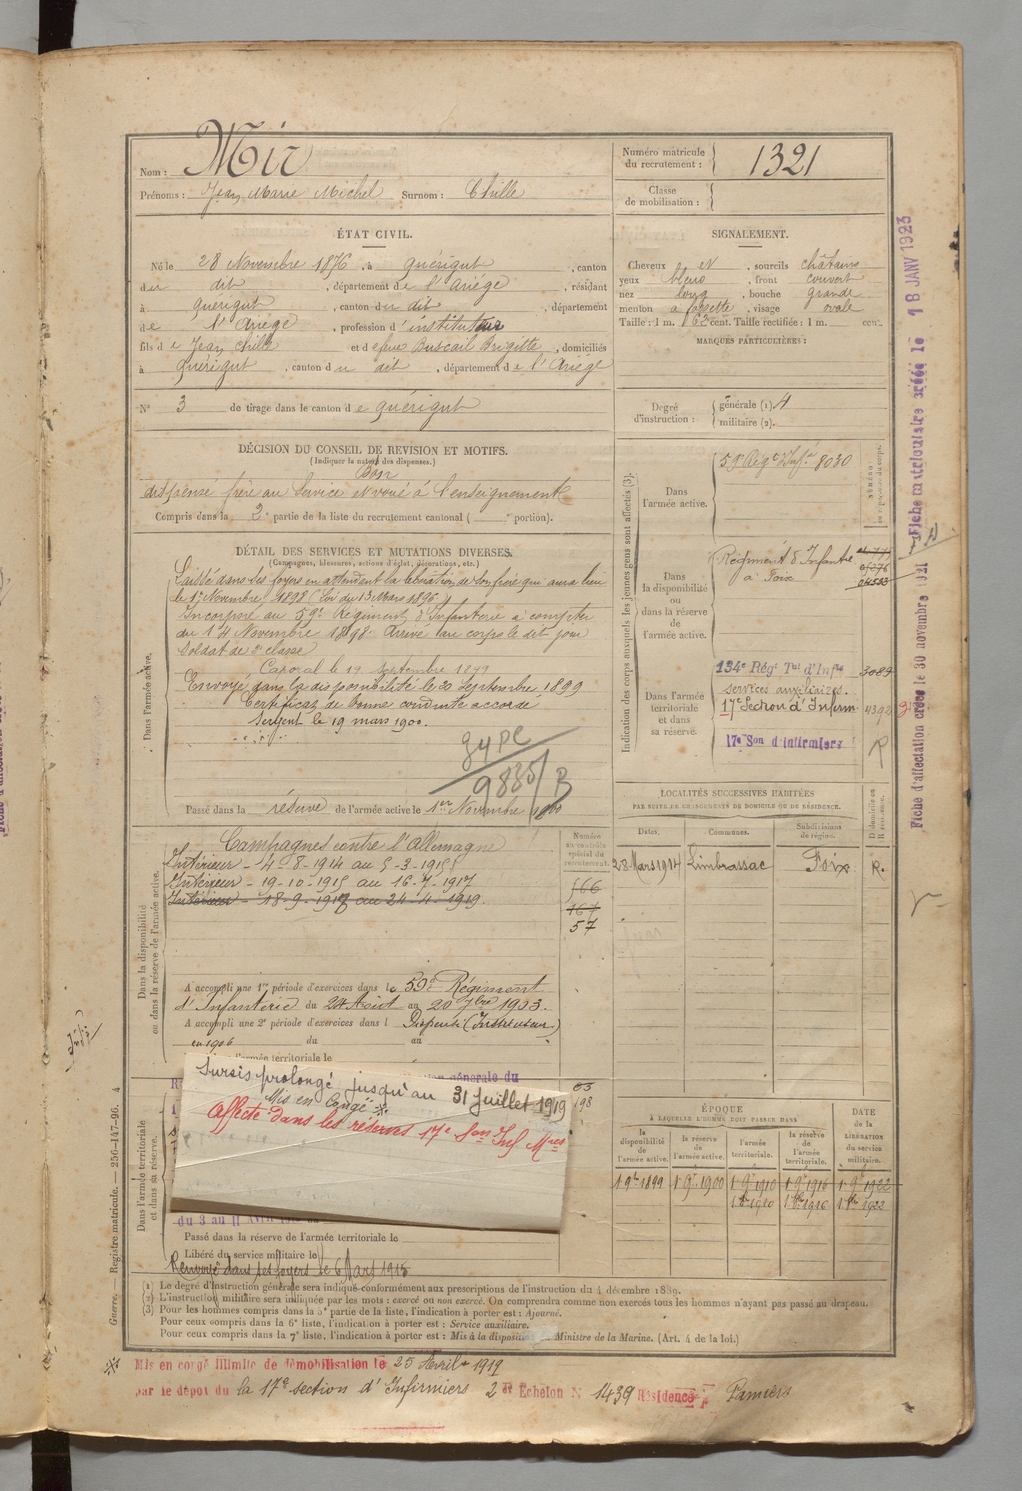 Nom : Mir
Prénoms : Jean Marie Michel Surnom : Chille
Numéro matricule du recrutement : 1321
Classe de mobilisation :
ÉTAT CIVIL.
Né le 28 Novembre 1876, à Quérigut, canton
du dit, département de l'Ariége, résidant
à Quérigut, canton du dit, département
de l'Ariége, profession d'instituteur
fils de Jean Chille et de feue Buscail Brigitte, domiciliés
à Quérigut, canton du dit, département de l'Ariége
N° 3 de tirage dans le canton de Quérigut
SIGNALEMENT.
Cheveux et, sourcils châtains
yeux bleus, front couvert
nez long, bouche grande
menton à fossette, visage ovale
Taille : 1 m. 62 cent. Taille rectifiée : 1 m. cent.
MARQUES PARTICULIÈRES :
Degré d'instruction : générale (1). 4
militaire (2).
DÉCISION DU CONSEIL DE REVISION ET MOTIFS.
(Indiquer la nature des dispenses.)
Bon
dispensé frère au Service et voué à l'enseignement
Compris dans la 2e partie de la liste du recrutement cantonal ( portion).
DÉTAIL DES SERVICES ET MUTATIONS DIVERSES.
(Campagnes, blessures, actions d'éclat, décorations, etc.)
Dans l'armée active.
Laissé dans ses foyers en attendant la libération de son frère qui aura lieu
le 1er Novembre 1898 (Loi du 13 Mars 1896)
Incorporé au 59e Régiment d'Infanterie à compter
du 14 Novembre 1898. Arrivé au corps le dit jour
soldat de 2e classe
Caporal le 19 Septembre 1899
Envoyé dans la disponibilité le 20 Septembre 1899
Certificat de bonne conduite accordé
Sergent le 19 mars 1900.
9835/B
Passé dans la réserve de l'armée active le 1er Novembre 1900
Indication des corps auxquels les jeunes gens sont affectés (3).
Dans l'armée active.
59e Régt d'Infie 8030
Dans la disponibilité ou dans la réserve de l'armée active.
Régiment d'Infantie
à Foix
Dans l'armée territoriale et dans sa réserve.
134e Régt Tal d'Infie 3089
services auxiliaires.
17e Section d'Infirm. 4392
17e Son d'Infirmiers
R
LOCALITÉS SUCCESSIVES HABITÉES
PAR SUITE DE CHANGEMENTS DE DOMICILE OU DE RÉSIDENCE.
Dates. Communes. Subdivisions de région. D domicile ou R résidence.
28 Mars 1914 Limbrassac Foix R.
Dans la disponibilité ou dans la réserve de l'armée active.
Numéro au contrôle spécial du recrutement.
Campagnes contre l'Allemagne
Intérieur - 4-8-1914 au 5-3-1915
Intérieur - 19-10-1915 au 16-7-1917
Intérieur - 18-9-1917 au 24-4-1919
566
167
57
A accompli une 1re période d'exercices dans le 59e Régiment
d'Infanterie du 24 Août au 20 7bre 1903.
A accompli une 2e période d'exercices dans l Dispensé (Instituteur)
en 1906 du au
l'armée territoriale le
générale du
Sursis prolongé jusqu'au 31 Juillet 1919
Mis en Congé
Affecté dans les réserves 17e Son Inf Mres
198
Dans l'armée territoriale et dans sa réserve.
du 3 au 11
Passé dans la réserve de l'armée territoriale le
Libéré du service militaire le
Renvoyé dans ses foyers le 6 Mars 1915
ÉPOQUE
À LAQUELLE L'HOMME DOIT PASSER DANS
DATE DE LA LIBÉRATION du service militaire.
la disponibilité de l'armée active. la réserve de l'armée active. l'armée territoriale. la réserve de l'armée territoriale.
1 9bre 1899 1 9bre 1900 1 9bre 1910 1 9bre 1916 1 9bre 1922
1 8bre 1910 1 8bre 1916 1 8bre 1922
(1) Le degré d'instruction générale sera indiqué conformément aux prescriptions de l'instruction du 4 décembre 1889.
(2) L'instruction militaire sera indiquée par les mots : exercé ou non exercé. On comprendra comme non exercés tous les hommes n'ayant pas passé au drapeau.
(3) Pour les hommes compris dans la 5e partie de la liste, l'indication à porter est : Ajourné.
Pour ceux compris dans la 6e liste, l'indication à porter est : Service auxiliaire.
Pour ceux compris dans la 7e liste, l'indication à porter est : Mis à la disposition Ministre de la Marine. (Art. 4 de la loi.)
Mis en congé illimité de démobilisation le 25 Avril 1919
par le dépôt du la 17e section d'Infirmiers 2e Échelon N 1439 Résidence Pamiers
Guerre. — Registre matricule. — 256-147-96. 4
Fiche matriculaire créée le 18 JANV 1923
Fiche d'affectation créée le 30 novembre 1921